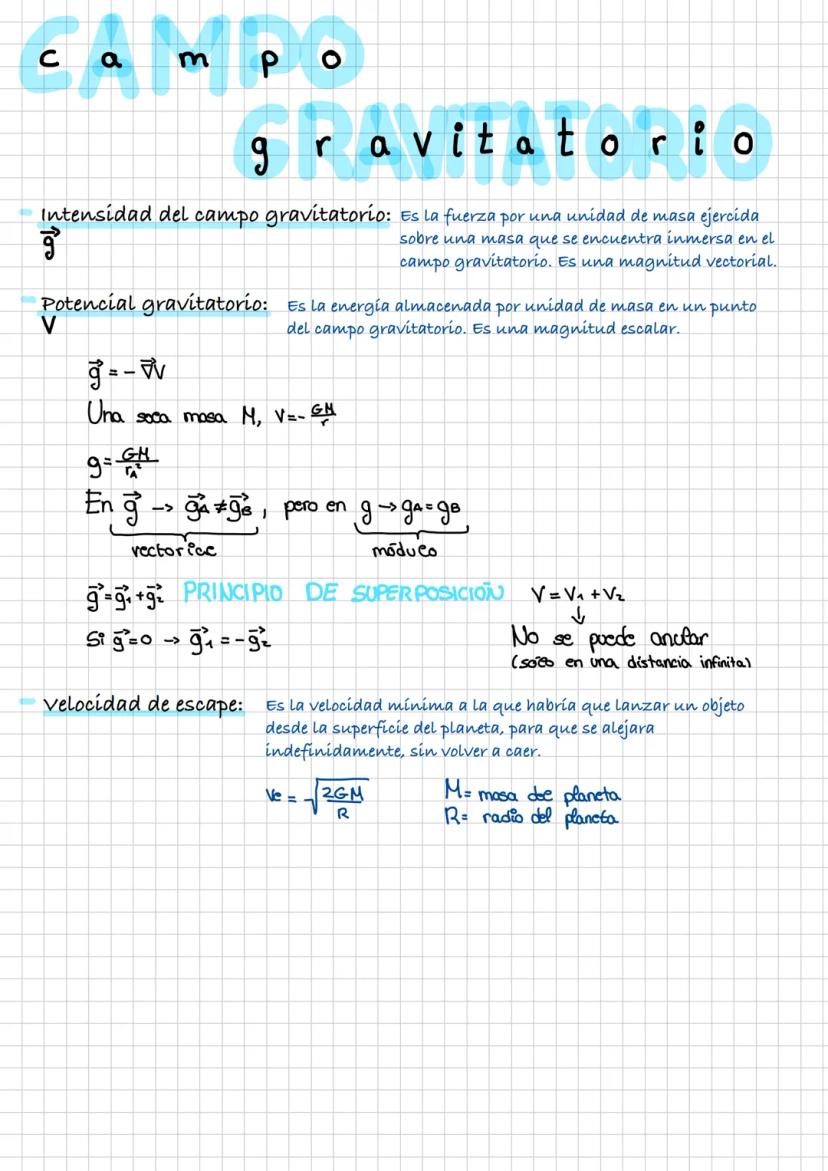 campo
gravitatorio
Intensidad del campo gravitatorio: Es la fuerza por una unidad de masa ejercida
g⃗ sobre una masa que se encuentra inmersa en el
campo gravitatorio. Es una magnitud vectorial.
Potencial gravitatorio: Es la energía almacenada por unidad de masa en un punto
V del campo gravitatorio. Es una magnitud escalar.
g⃗ = - ∇⃗V
Una sola masa M, V = - GM/r
g = GM/r_A²
En g⃗ -> g⃗_A ≠ g⃗_B, pero en g -> g_A = g_B
vectorial módulo
g⃗ = g⃗₁ + g⃗₂ PRINCIPIO DE SUPERPOSICIÓN V = V₁ + V₂
↓
Si g⃗ = 0 -> g⃗₁ = - g⃗₂ No se puede anular
(solo en una distancia infinita)
Velocidad de escape: Es la velocidad mínima a la que habría que lanzar un objeto
desde la superficie del planeta, para que se alejara
indefinidamente, sin volver a caer.
Ve = √(2GM/R) M = masa del planeta
R = radio del planeta